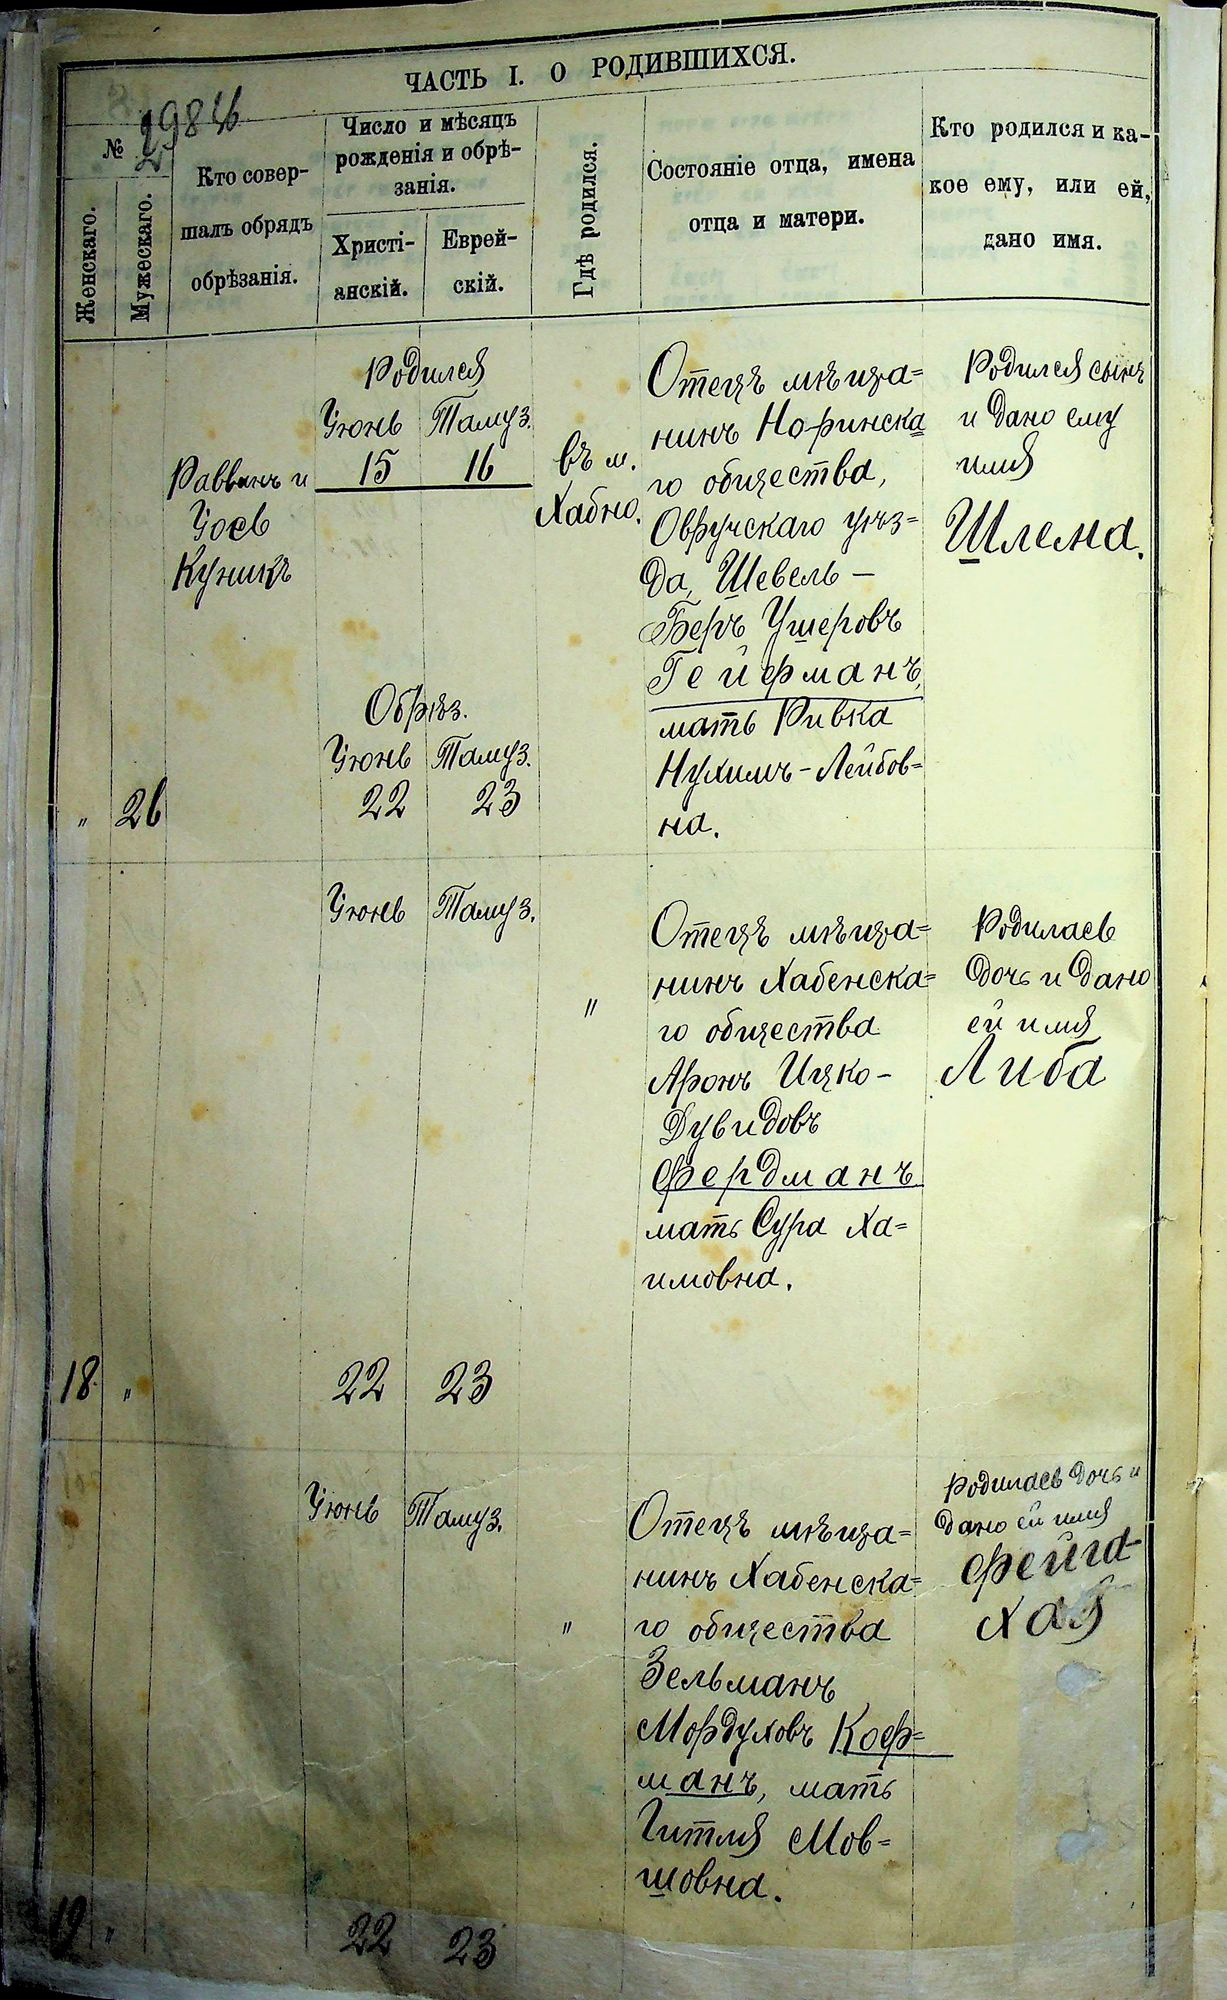 ЧАСТЬ I. О РОДИВШИХСЯ.
№
Женскаго.
Мужескаго.
Кто совер-
шалъ обрядъ
обрѣзанія.
Число и мѣсяцъ
рожденія и обрѣ-
занія.
Христі-
анскій.
Еврей-
скій.
Гдѣ родился.
Состояніе отца, имена
отца и матери.
Кто родился и ка-
кое ему, или ей,
дано имя.
"
26
Раввинъ и
Іось
Куникъ
Родился
Іюнь Тамуз.
15 16
Обрѣз.
Іюнь Тамуз.
22 23
въ м.
Хабно.
Отецъ мѣща=
нинъ Норинска
го общества,
Овручскаго уѣз=
да, Шевель-
Беръ Ушеровъ
Гейфманъ,
мать Ривка
Нухимъ-Лейбов=
на.
Родился сынъ
и дано ему
имя
Шлема.
18
"
Іюнь Тамуз.
22 23
"
Отецъ мѣща=
нинъ Хабенска=
го общества
Аронъ Ицко-
Дувидовъ
Фердманъ
мать Сура Ха=
имовна.
Родилась
дочь и дано
ей имя
Либа
19
"
Іюнь Тамуз.
22 23
"
Отецъ мѣща=
нинъ Хабенска=
го общества
Зельманъ
Мордуховъ Коф=
манъ, мать
Гитля Мов=
шовна.
Родилась дочь и
дано ей имя
Фейга-
Хая